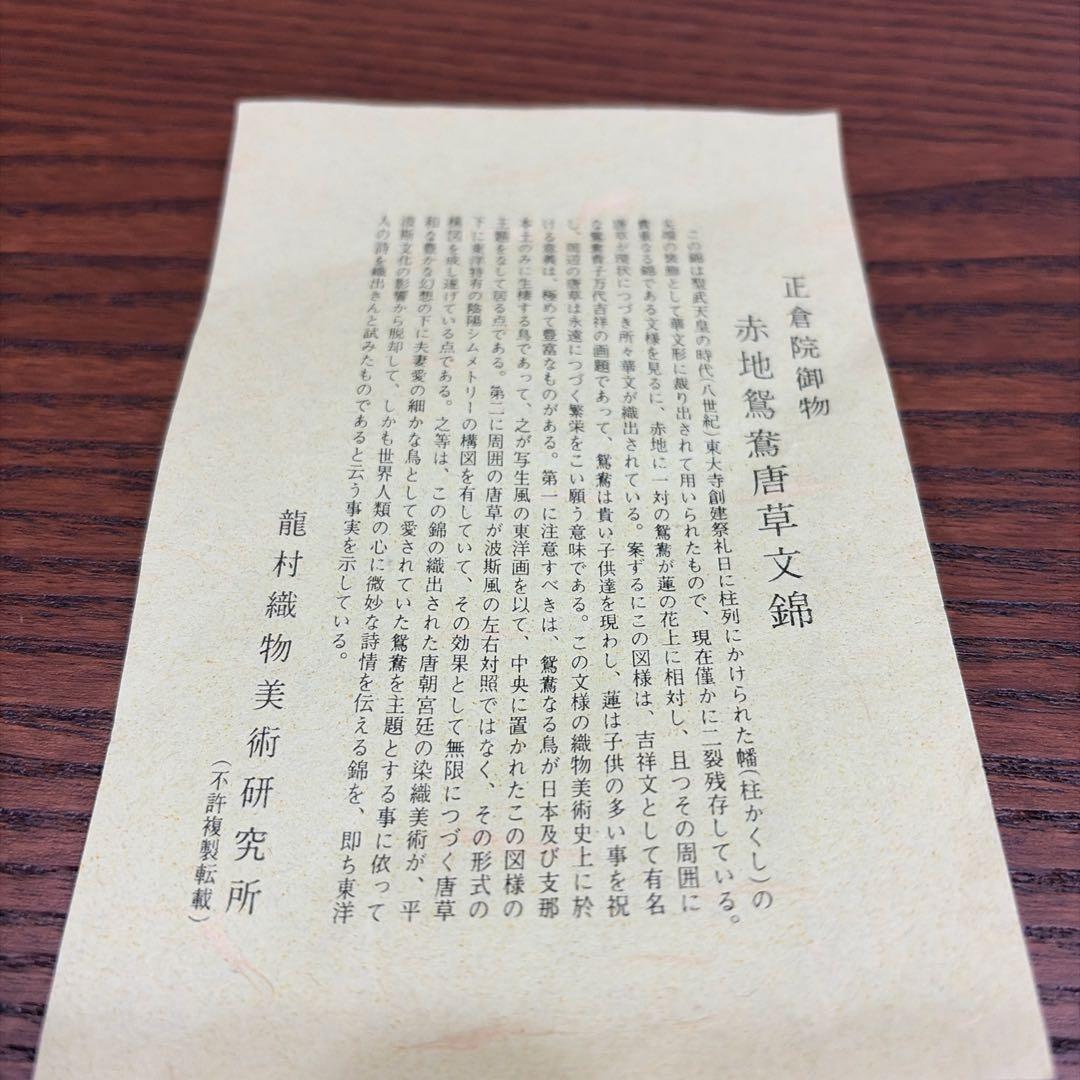 正倉院御物
赤地鴛鴦唐草文錦
この錦は聖武天皇の時代(八世紀)東大寺創建祭礼日に柱列にかけられた幡(柱かくし)の
先端の装飾として華文形に裁り出されて用いられたもので、現在僅かに二裂残存している。
貴重なる錦である文様を見るに、赤地に一対の鴛鴦が蓮の花上に相対し、且つその周囲に
唐草が環状につづき所々華文が織出されている。案ずるにこの図様は、吉祥文として有名
な鴛鴦貴子万代吉祥の画題であって、鴛鴦は貴い子供達を現わし、蓮は子供の多い事を祝
し、周辺の唐草は永遠につづく繁栄をこい願う意味である。この文様の織物美術史上に於
ける意義は、極めて豊富なものがある。第一に注意すべきは、鴛鴦なる鳥が日本及び支那
本土のみに生棲する鳥であって、之が写生風の東洋画を以て、中央に置かれたこの図様の
主題をなして居る点である。第二に周囲の唐草が波斯風の左右対照ではなく、その形式の
下に東洋特有の陰陽シムメトリーの構図を有していて、その効果として無限につづく唐草
模図を成し遂げている点である。之等は、この錦の織出された唐朝宮廷の染織美術が、平
和な豊かな幻想の下に夫妻愛の細かな鳥として愛されていた鴛鴦を主題とする事に依って
波斯文化の影響から脱却して、しかも世界人類の心に微妙な詩情を伝える錦を、即ち東洋
人の詩を織出さんと試みたものであると云う事実を示している。
龍村織物美術研究所
(不許複製転載)